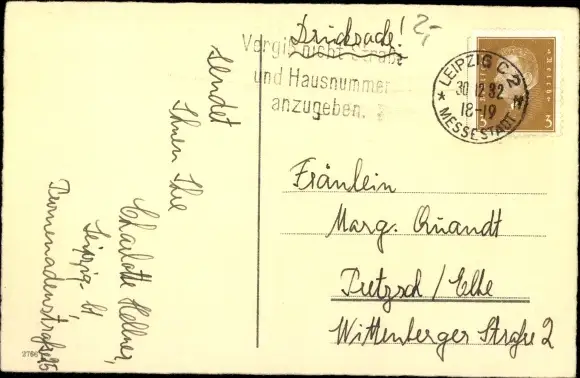 Drucksache! 2,-
Vergiß nicht Straße
und Hausnummer
anzugeben.
LEIPZIG C 2
30.12.32
18-19
* MESSESTADT *
3 3
sendet
Ihnen Ihre
Charlotte Kellner,
Leipzig.
Promenadenstraße
Fräulein
Marg. Quandt
Pretzsch / Elbe
Wittenberger Straße 2